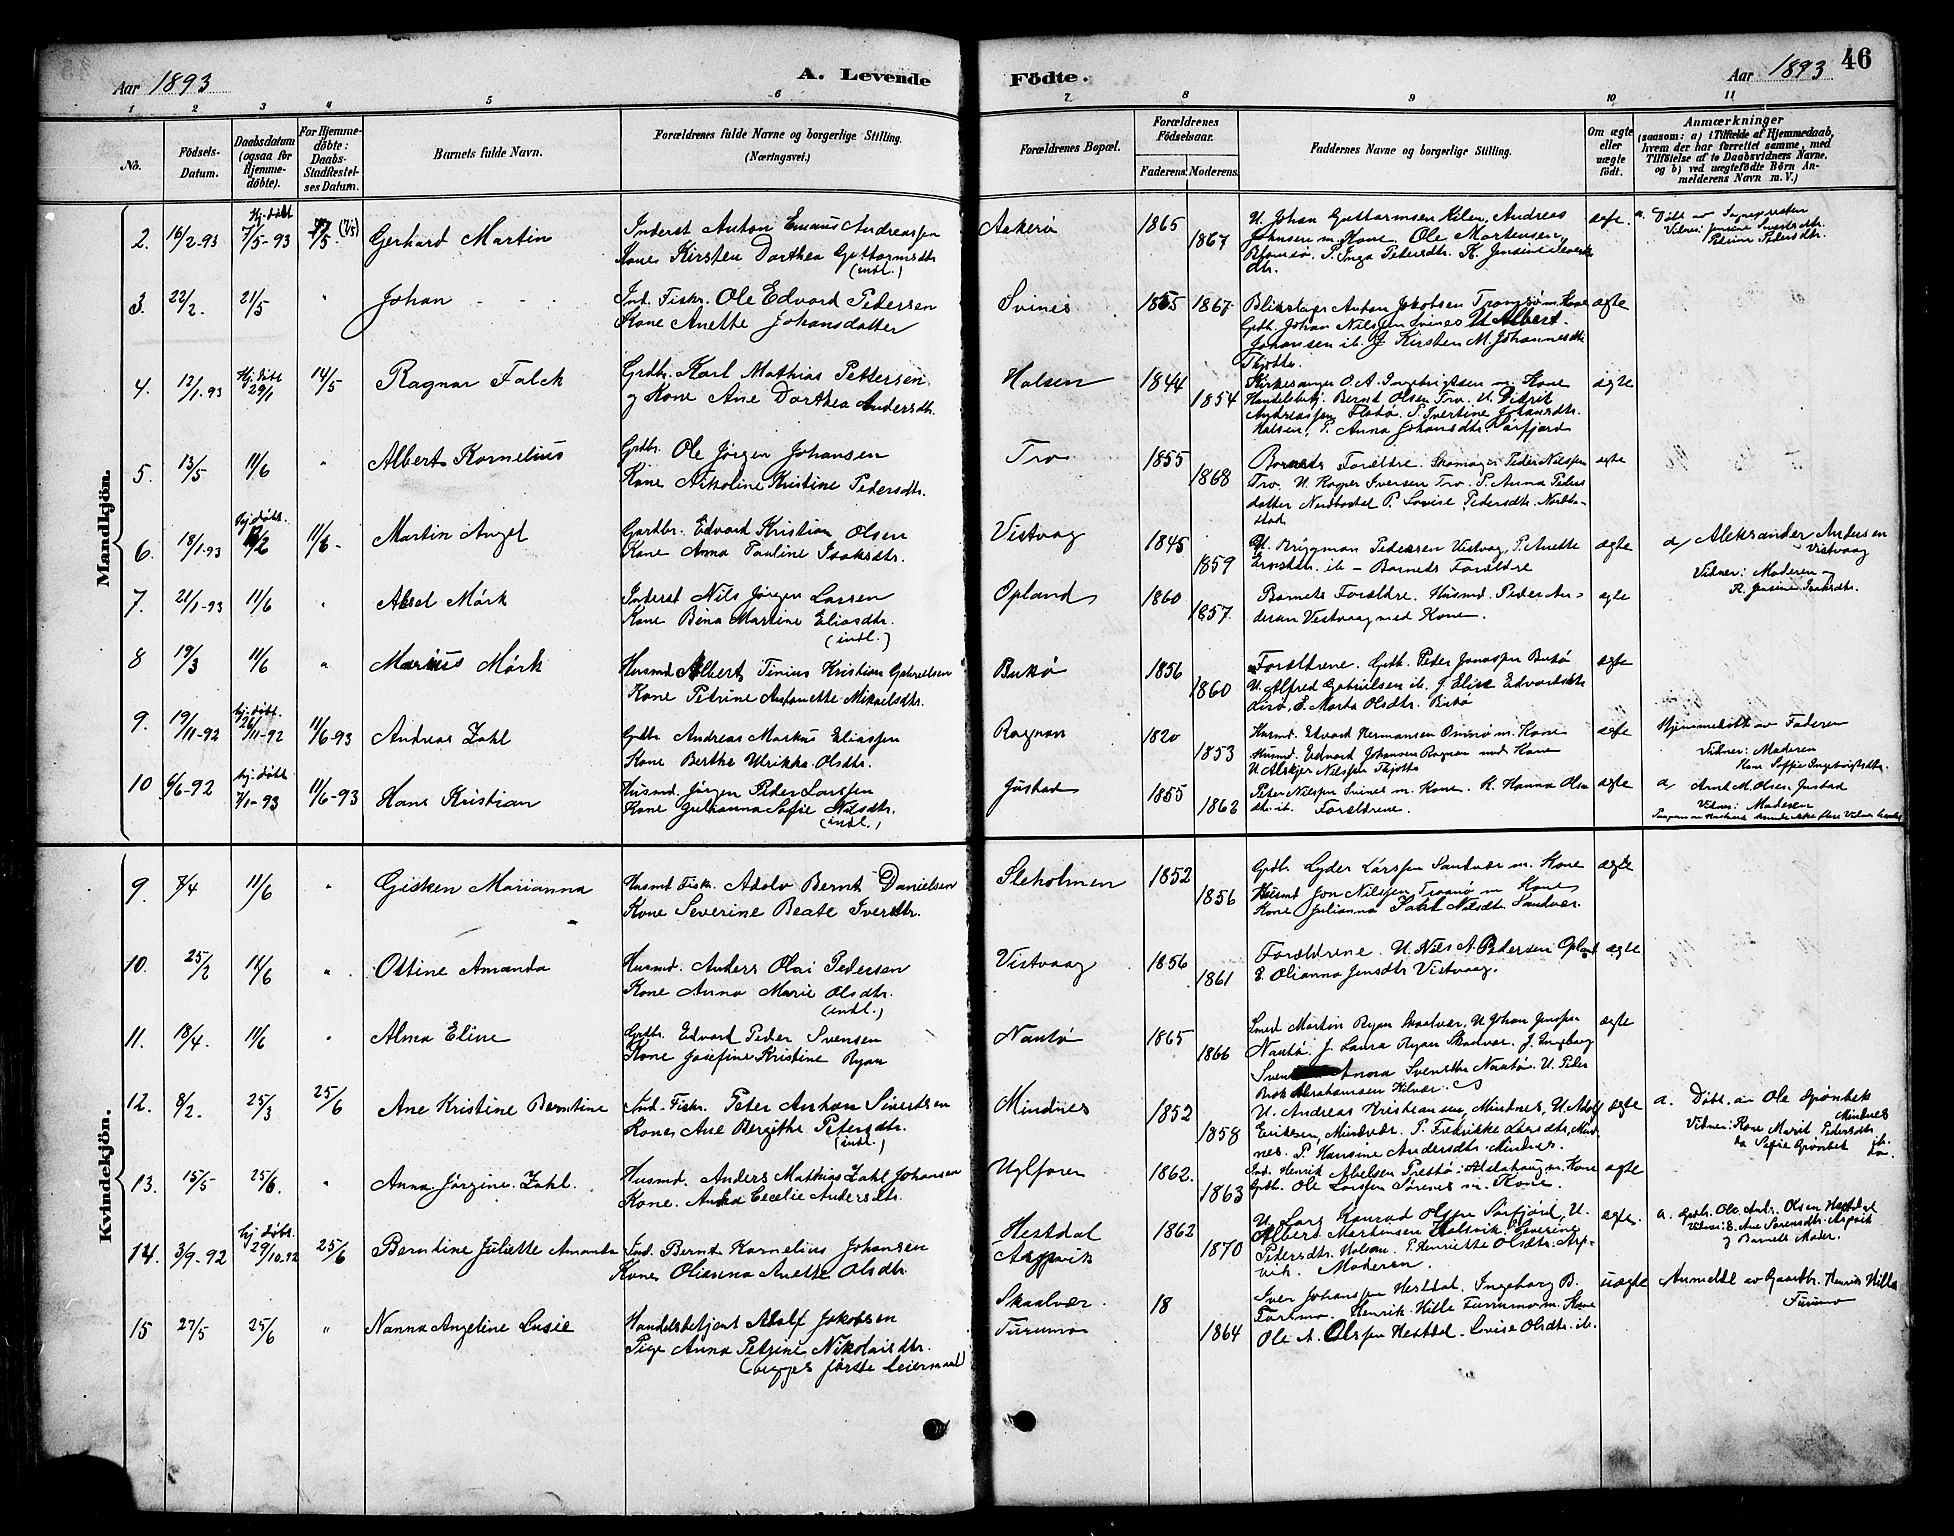 Aar 1893
A. Levende
Födte.
Aar 1893
46
1 2 3 4 5 6 7 8 9 10 11
No.
Födsels-Datum.
Daabsdatum (ogsaa for Hjemme-døbte).
For Hjemme-døbte: Daabs-Stadfæstel-ses Datum.
Barnets fulde Navn.
Forældrenes fulde Navne og borgerlige Stilling.
(Næringsvei.)
Forældrenes Bopæl.
Forældrenes Födselsaar.
Faderens. Moderens.
Faddernes Navne og borgerlige Stilling.
Om ægte eller uægte födt.
Anmærkninger
(saasom: a) i Tilfælde af Hjemmedaab, hvem der har forrettet samme, med Tilföielse af to Daabsvidners Navne, og b) ved uægtefödte Börn An-melderens Navn m. V.)
Mandkjön.
2. 16/2-93 Hj. døbt 7/5-93 Gerhard Martin
Inderst Anton Emaus Andreassen
Kone Kirsten Dorthea Guttormsdtr.
(indl.)
Askerø 1865 1867
U. Johan Guttormsen Kilen, Andreas
Johnsen m. Kone. Ole Mortensen,
Blomsø, P. Inga Pedersdtr. K. Jensine
dtr.
ægte.
3. 22/2. 21/5 " Johan
Ind. Fisk. Ole Edvard Pedersen
Kone Anette Johansdatter
Svines 1865 1867
Anton Jakobsen m. Kone
Grdb. Johan Nilssen Svines U. Albert
Johansen ib. J. Kirsten M. Johannesdtr
Thjøtta.
ægte
4. 12/1-93 Hj. døbt 29/1 14/5 Ragnar Falck
Grdbr. Karl Mathias Pettersen
og Kone Ane Dorthea Andersdtr.
Halsen 1844 1854
Kirkesanger O. A. Ingebrigtsen m. Kone
Handelsbetj. Bernt Olsen Tro. U. Didrik
Andreassen Flatø. P. Ivertine Johansdtr.
Halsen, P. Anna Johansdtr.
ægte
5. 13/5 11/6 " Albert Kornelius
Grdbr. Ole Jørgen Johansen
Kone Nikoline Kristine Pedersdtr.
Tro 1855 1868
Barnets Forældre. Skomager Peder Nilssen
Tro. U. Kasper Iversen Tro. P. Anna Peders
datter P. Lovise Pedersdtr.
ægte
6. 18/1-93 Hj. døbt. 11/6- Martin Angel
Gardbr. Edvard Kristian Olsen
Kone Anna Pauline Isaksdtr.
Vistvaag 1845 1859
U. Pedersen Vistvaag, P. Anette
ib - Barnets Forældre
ægte
a, Aleksander Andersen
Vistvaag
Vidner: Moderen og
K. Jensine Isaksdtr.
7. 21/1-93 11/6 " Aksel Mørk
Inderst Nils Jørgen Larsen
Kone Bina Martine Eliasdtr.
(indl.)
Opland 1860 1857.
Barnets Forældre. Husmd. Peder An-
dersen Vistvaag med Kone.
ægte
8 19/3 11/6 " Marius Mørk
Husmd Albert Tinius Kristian Gabrielsen
Kone Petrine Antonette Mikaelsdtr.
Bukø 1856 1860
Forældrene. Grdb. Peder Jonassen Bukø
U. Alfred Gabrielsen ib. J. Elise Edvardsdtr
P. Marta Olsdtr. Bukø
ægte
9. 19/11-92 Hj. døbt. 26/11-92 11/6-93 Andreas Zahl
Grdbr Andreas Markus Eliassen
Kone Berthe Ulrikke Olsdtr.
Rognan 1820 1853
Husmd. Edvard Hermansen Omnø m. Kone
Husmd. Edvard Johansen Rognan med Kone
U. Nilssen Thjøtta
ægte
Hjemmedøbt av Faderen
Vidner: Moderen
Kone Soffie Ingebrigtsdtr.
10 6/6-92 Hj. døbt. 7/1-93 11/6-93 Hans Kristian
Husmd. Jørgen Peder Larssen
Kone Julianna Sofie Nilsdtr.
(indl.)
Jøstad 1855 1862
Peter Nilssen Svines m. Kone. K. Hanna Ols
dtr. ib. Forældrene.
ægte
a, Arnt M. Olsen Jøstad
Vidner: Moderen
Kvindekjön.
9. 7/4 11/6 " Gidken Marianna
Husmd Fisk. Adolv Bernt Danielsen
Kone Severine Beate Iversdtr.
Sleholmen 1852 1856
Grdb. Lyder Larssen Sandvær m. Kone
Husmd Jon Nilssen Tranø m Kone
Kone Julianna Zahl Nilsdtr. Sandvær.
ægte
10. 25/2 11/6 " Ottine Amanda
Husmd. Anders Olai Pedersen
Kone Anna Marie Olsdtr.
(indl.)
Vistvaag 1856 1861
Forældrene. U. Nils A. Pedersen Opland
E. Olianna Jensdtr Vistvaag.
ægte
11. 18/4. 11/6 " Alma Eline
Grdbr. Edvard Peder Svensen
Kone Josefine Kristine Ryan
Nautø 1865 1866
Martin Ryan Skaalvær, U. Johan Jenssen
Nautø. J. Laura Ryan Skaalvær. J. Ingeborg
Anna Svensdtr Nautø. U. Peder
Abrahamsen
ægte
12. 8/2. 25/3 25/6 Ane Kristine Berntine
Ind. Fisk. Peter Anton Sivertsen
Kone Ane Bergithe Petersdtr.
(indl.)
Mindnes 1852 1858
U. Andreas Kristiansen, Mindnes, U. Adolf
Eriksen, P. Fredrikke Larsdtr, Mind
nes. P. Hansine Andersdtr. Mindnes.
ægte
a. Døbt. av Ole Grønbek
Mindnes
Vidner: Kone Marit Pedersdtr
do Sofie Grønbek
13. 15/5 25/6. " Anna Jørgine Zahl.
Husmd. Anders Mathias Zahl Johansen
Kone. Anna Cecelie Andersdtr.
Uglforen 1862. 1863
Ind. Henrik Abelsen Prestø Alstahaug m. Kone
Grdb. Ole Larssen m. Kone.
ægte
14. 3/9-92 Hj. døbt. 29/10-92 25/6 Berntine Juliette Amanda
Ind. Bernt Kornelius Johansen
Kone Olianna Anette Olsdtr.
Hestdal
Aspvik 1862 1870
U. Lars Konrad Olssen U.
Albert Martinsen Severine
Petersdtr. Halsen. P. Henriette Olsdtr. Asp-
vik. Moderen.
ægte.
a. Grdb. Ole Andr. Olsen Hestdal
Vidner: E. Ane Sørensdtr. Aspvik
og Barnets Moder.
15 27/5 25/6 " Nanna Angeline Lusie
Handelsbetjent Adolf Jakobsen
Pige Anna Petrine Nikolaisdtr.
(begges første leiermaal)
Skaalvær. 18
Furumo 1864
Iver Johanssen Hestdal. Ingeborg B.
Forsmo. Henrik Hille Furumo m. Kone
Ole A. Olssen Hestdal. Lovise Olsdtr. ib.
uægte
Anmeldt av Gaardbr. Henrik Hille
Furumo